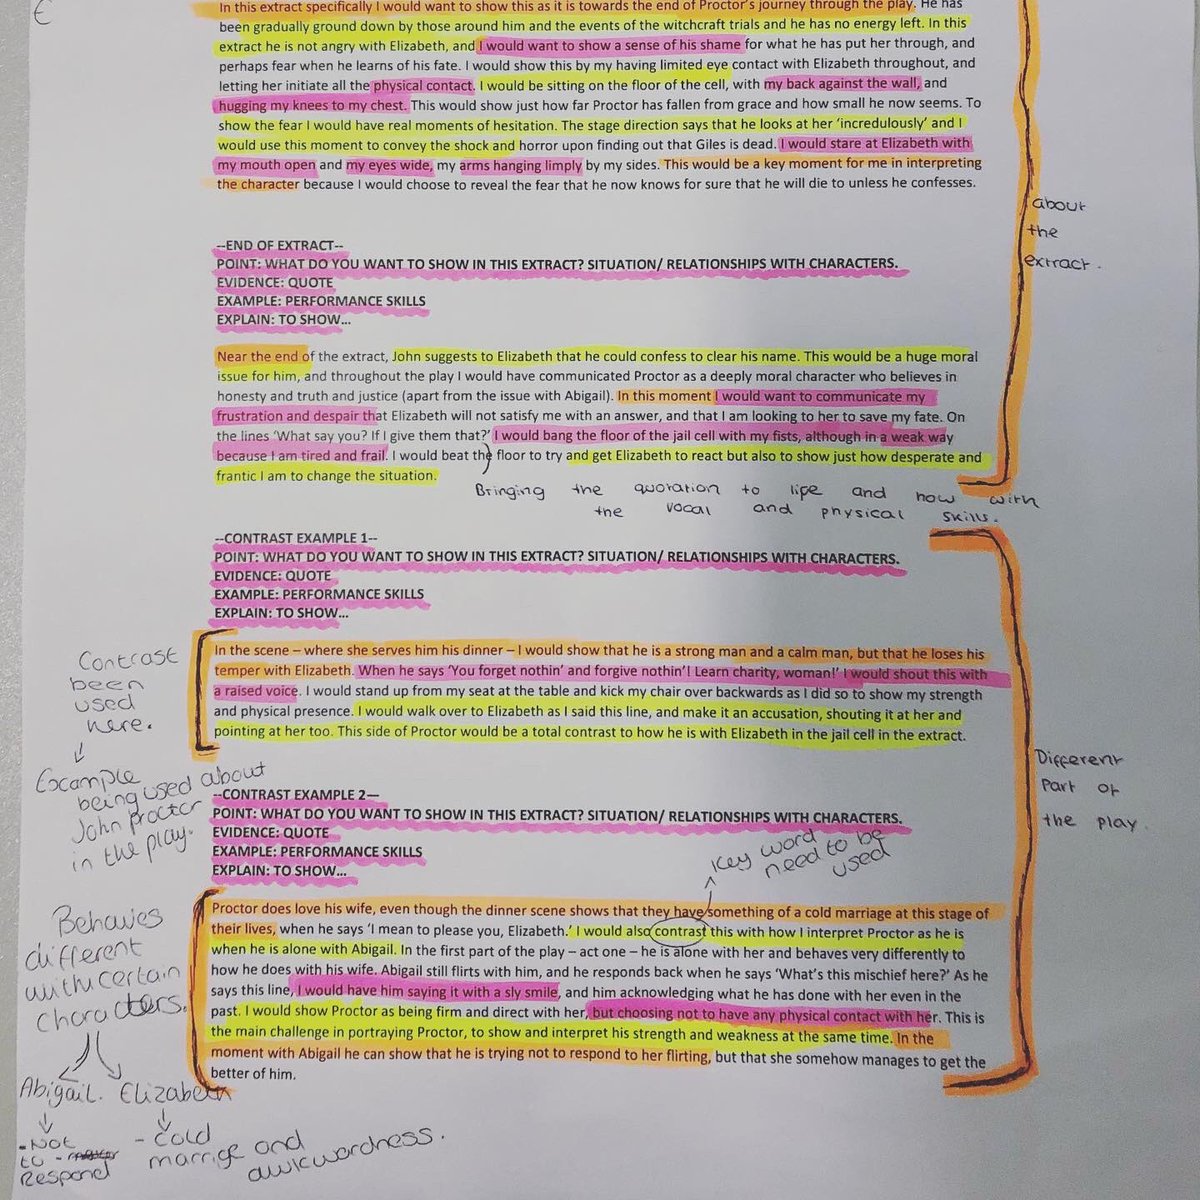 E
In this extract specifically I would want to show this as it is towards the end of Proctor's journey through the play. He has
been gradually ground down by those around him and the events of the witchcraft trials and he has no energy left. In this
extract he is not angry with Elizabeth, and I would want to show a sense of his shame for what he has put her through, and
perhaps fear when he learns of his fate. I would show this by my having limited eye contact with Elizabeth throughout, and
letting her initiate all the physical contact. I would be sitting on the floor of the cell, with my back against the wall, and
hugging my knees to my chest. This would show just how far Proctor has fallen from grace and how small he now seems. To
show the fear I would have real moments of hesitation. The stage direction says that he looks at her 'incredulously' and I
would use this moment to convey the shock and horror upon finding out that Giles is dead. I would stare at Elizabeth with
my mouth open and my eyes wide, my arms hanging limply by my sides. This would be a key moment for me in interpreting
the character because I would choose to reveal the fear that he now knows for sure that he will die to unless he confesses.
about
the
extract.
--END OF EXTRACT--
POINT: WHAT DO YOU WANT TO SHOW IN THIS EXTRACT? SITUATION/ RELATIONSHIPS WITH CHARACTERS.
EVIDENCE: QUOTE
EXAMPLE: PERFORMANCE SKILLS
EXPLAIN: TO SHOW...
Near the end of the extract, John suggests to Elizabeth that he could confess to clear his name. This would be a huge moral
issue for him, and throughout the play I would have communicated Proctor as a deeply moral character who believes in
honesty and truth and justice (apart from the issue with Abigail). In this moment I would want to communicate my
frustration and despair that Elizabeth will not satisfy me with an answer, and that I am looking to her to save my fate. On
the lines 'What say you? If I give them that?' I would bang the floor of the jail cell with my fists, although in a weak way
because I am tired and frail. I would beat the floor to try and get Elizabeth to react but also to show just how desperate and
frantic I am to change the situation.
Bringing the quoration to life and how with
the vocal and physical skills.
--CONTRAST EXAMPLE 1--
POINT: WHAT DO YOU WANT TO SHOW IN THIS EXTRACT? SITUATION/ RELATIONSHIPS WITH CHARACTERS.
EVIDENCE: QUOTE
EXAMPLE: PERFORMANCE SKILLS
EXPLAIN: TO SHOW...
Contrast
been
used
here.
In the scene – where she serves him his dinner – I would show that he is a strong man and a calm man, but that he loses his
temper with Elizabeth. When he says 'You forget nothin' and forgive nothin'! Learn charity, woman!' I would shout this with
a raised voice. I would stand up from my seat at the table and kick my chair over backwards as I did so to show my strength
and physical presence. I would walk over to Elizabeth as I said this line, and make it an accusation, shouting it at her and
pointing at her too. This side of Proctor would be a total contrast to how he is with Elizabeth in the jail cell in the extract.
Example
being used about
John proctor
in the play.
Different
part of
the play.
--CONTRAST EXAMPLE 2—
POINT: WHAT DO YOU WANT TO SHOW IN THIS EXTRACT? SITUATION/ RELATIONSHIPS WITH CHARACTERS.
EVIDENCE: QUOTE
EXAMPLE: PERFORMANCE SKILLS
EXPLAIN: TO SHOW...
Key word
need to be
used
Behavies
different
with certain
characters.
Proctor does love his wife, even though the dinner scene shows that they have something of a cold marriage at this stage of
their lives, when he says 'I mean to please you, Elizabeth.' I would also contrast this with how I interpret Proctor as he is
when he is alone with Abigail. In the first part of the play – act one – he is alone with her and behaves very differently to
how he does with his wife. Abigail still flirts with him, and he responds back when he says 'What's this mischief here?' As he
says this line, I would have him saying it with a sly smile, and him acknowledging what he has done with her even in the
past. I would show Proctor as being firm and direct with her, but choosing not to have any physical contact with her. This is
the main challenge in portraying Proctor, to show and interpret his strength and weakness at the same time. In the
moment with Abigail he can show that he is trying not to respond to her flirting, but that she somehow manages to get the
better of him.
Abigail. Elizabeth
- Not
to
Respond
- Cold
marrige and
awkwardness.